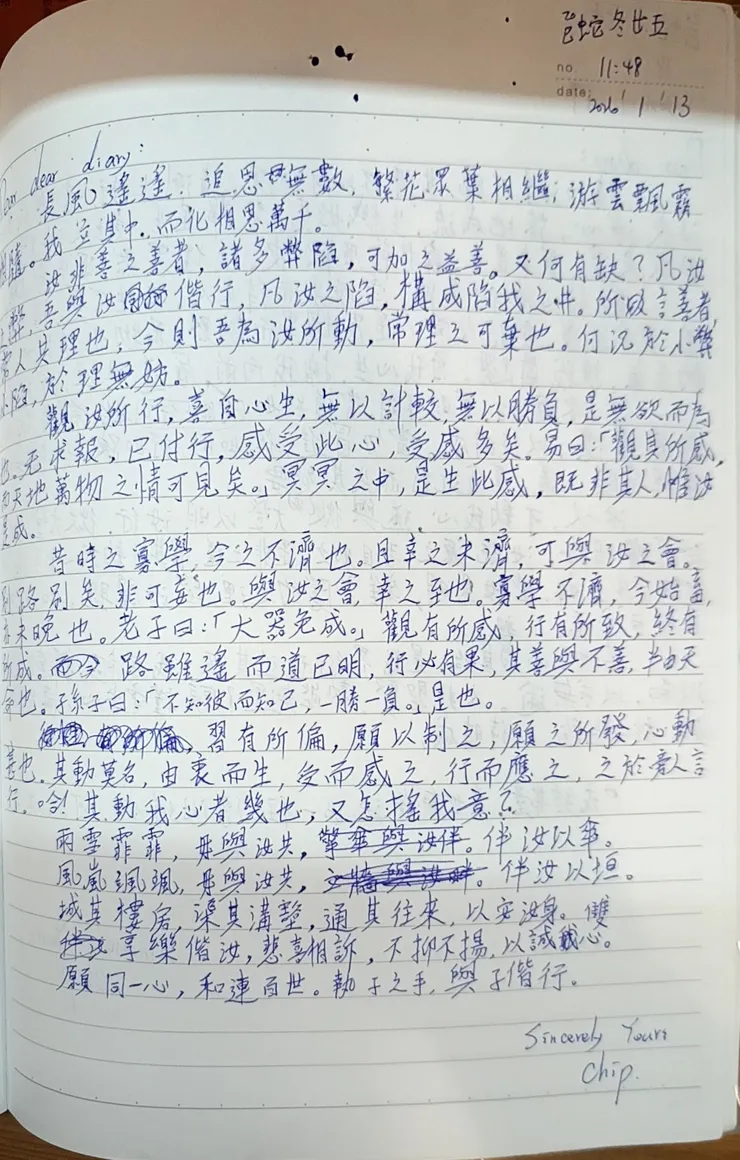 乙巳蛇冬廿五
no. 11:48
date: 2026 / 1 / 13
dear diary:
長風遙遙,追思無數,繁花眾葉相繼;游雲飄霧
隨。我立其中,而化相思萬千。
汝非善之善者,諸多弊陷,可加之益善。又何有缺?凡汝
弊,吾與汝偕行,凡汝之陷,構成陷我之井。所以言善者,
常人其理也,今則吾為汝所動,常理之可棄也。何況於小弊
小陷,於理無妨。
觀汝所行,喜自心生,無以計較,無以勝負,是無欲而為
也。无求報,已付行,感受此心,受感多矣。易曰:「觀其所感,
而天地萬物之情可見矣。」冥冥之中,是生此感,既非其人,惟汝
是成。
昔時之寡學,今之不濟也。且幸之未濟,可與汝之會。
別路別矣,非可妄也。與汝之會,幸之至也。寡學不濟,今始畜,
未晚也。老子曰:「大器免成。」觀有所感,行有所致,終有
所成。路雖遙而道已明,行必有果,其善與不善,半由天
命也。孫子曰:「不知彼而知己,一勝一負。」是也。
習有所偏,願以制之,願之所發,心動
意也。其動莫名,由衷而生,受而感之,行而應之,之於旁人言
行。哈!其動我心者幾也,又怎搖我意?
雨雪霏霏,毋與汝共,擎傘與汝伴。伴汝以傘。
風嵐颯颯,毋與汝共,伴汝以垣。
城其樓房,渠其溝塹,通其往來,以安汝身。雙
享樂偕汝,悲喜相訴,不抑不揚,以誠我心。
願同一心,和連百世。執子之手,與子偕行。
Sincerely Yours
Chip.